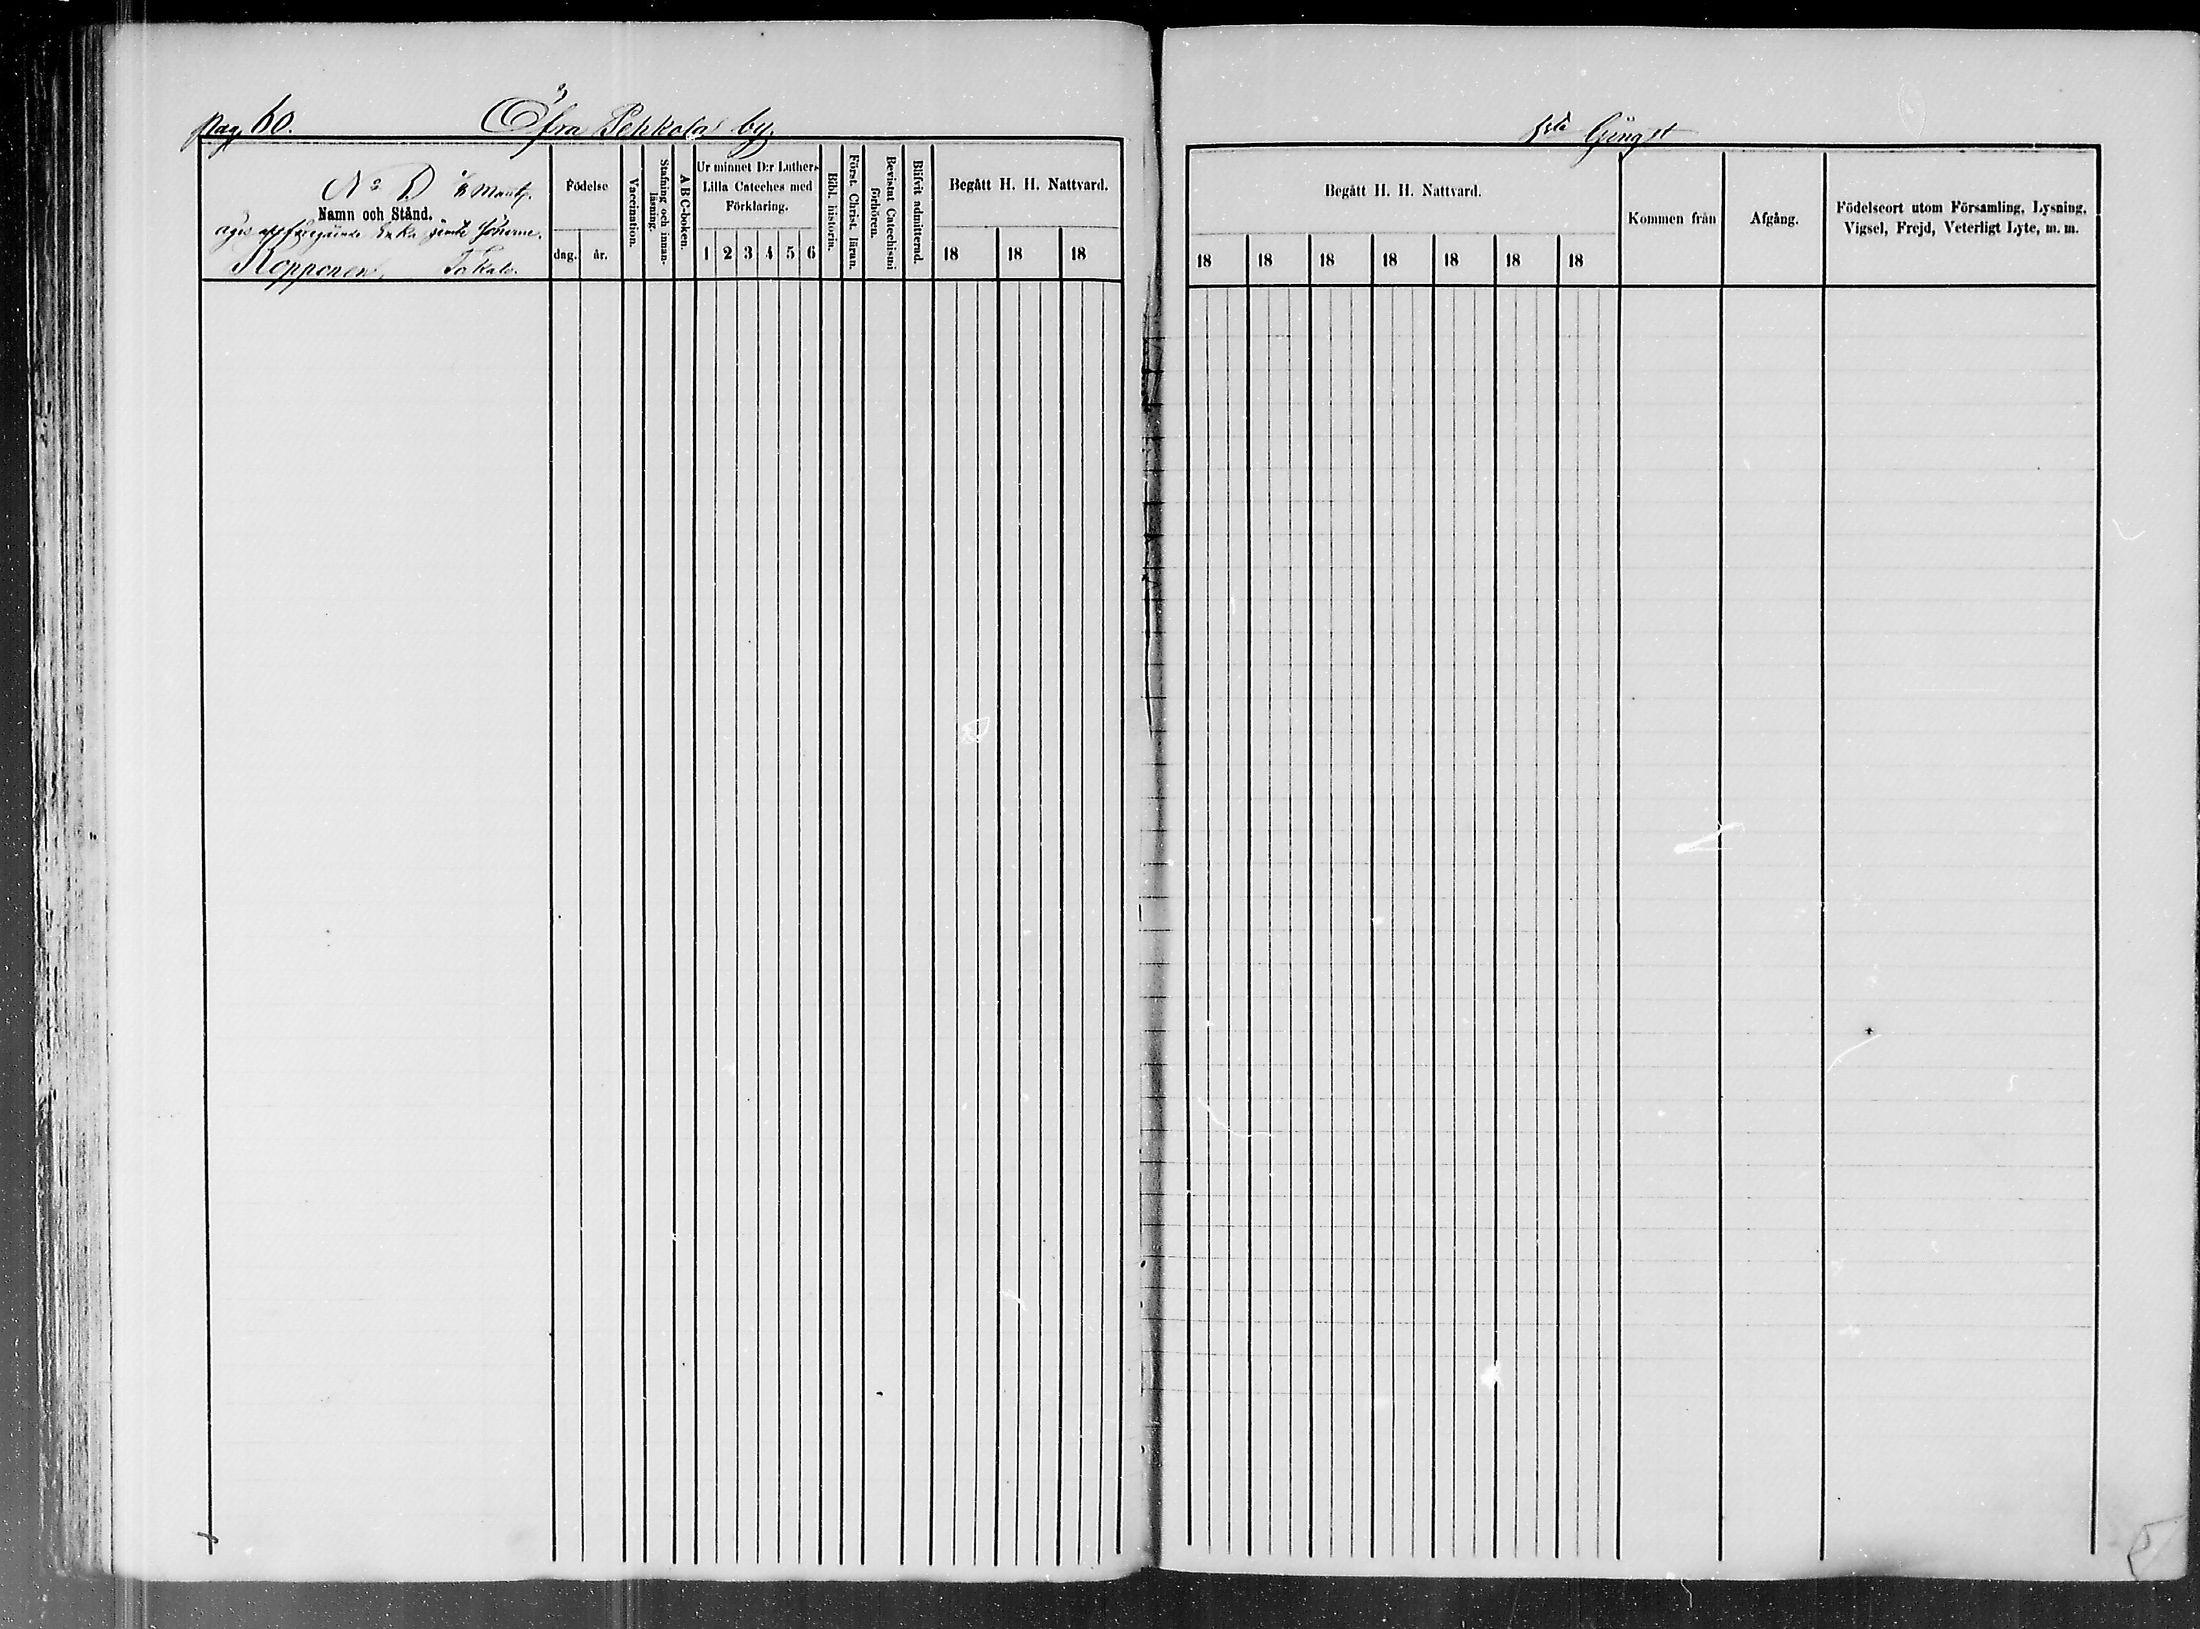 pag 60. Öfra Pehkola by.
N:o 5 1/8 Mantl.
Namn och Stånd.
äges af föregående Enka jemte Sönerne.
Kopponen, Tokalo.
Födelse
dag. år.
Vaccination.
Stafning och innanläsning.
A B C-boken.
Ur minnet D:r Luthers
Lilla Cateches med
Förklaring.
1 2 3 4 5 6
Bibl. historin.
Först. Christ. läran.
Bevistat Catechismi förhören.
Blifvit admitterad.
Begått H. H. Nattvard.
18 18 18
1sta
Begått H. H. Nattvard.
18 18 18 18 18 18 18
Kommen från
Afgång.
Födelseort utom Församling, Lysning,
Vigsel, Frejd, Veterligt Lyte, m. m.